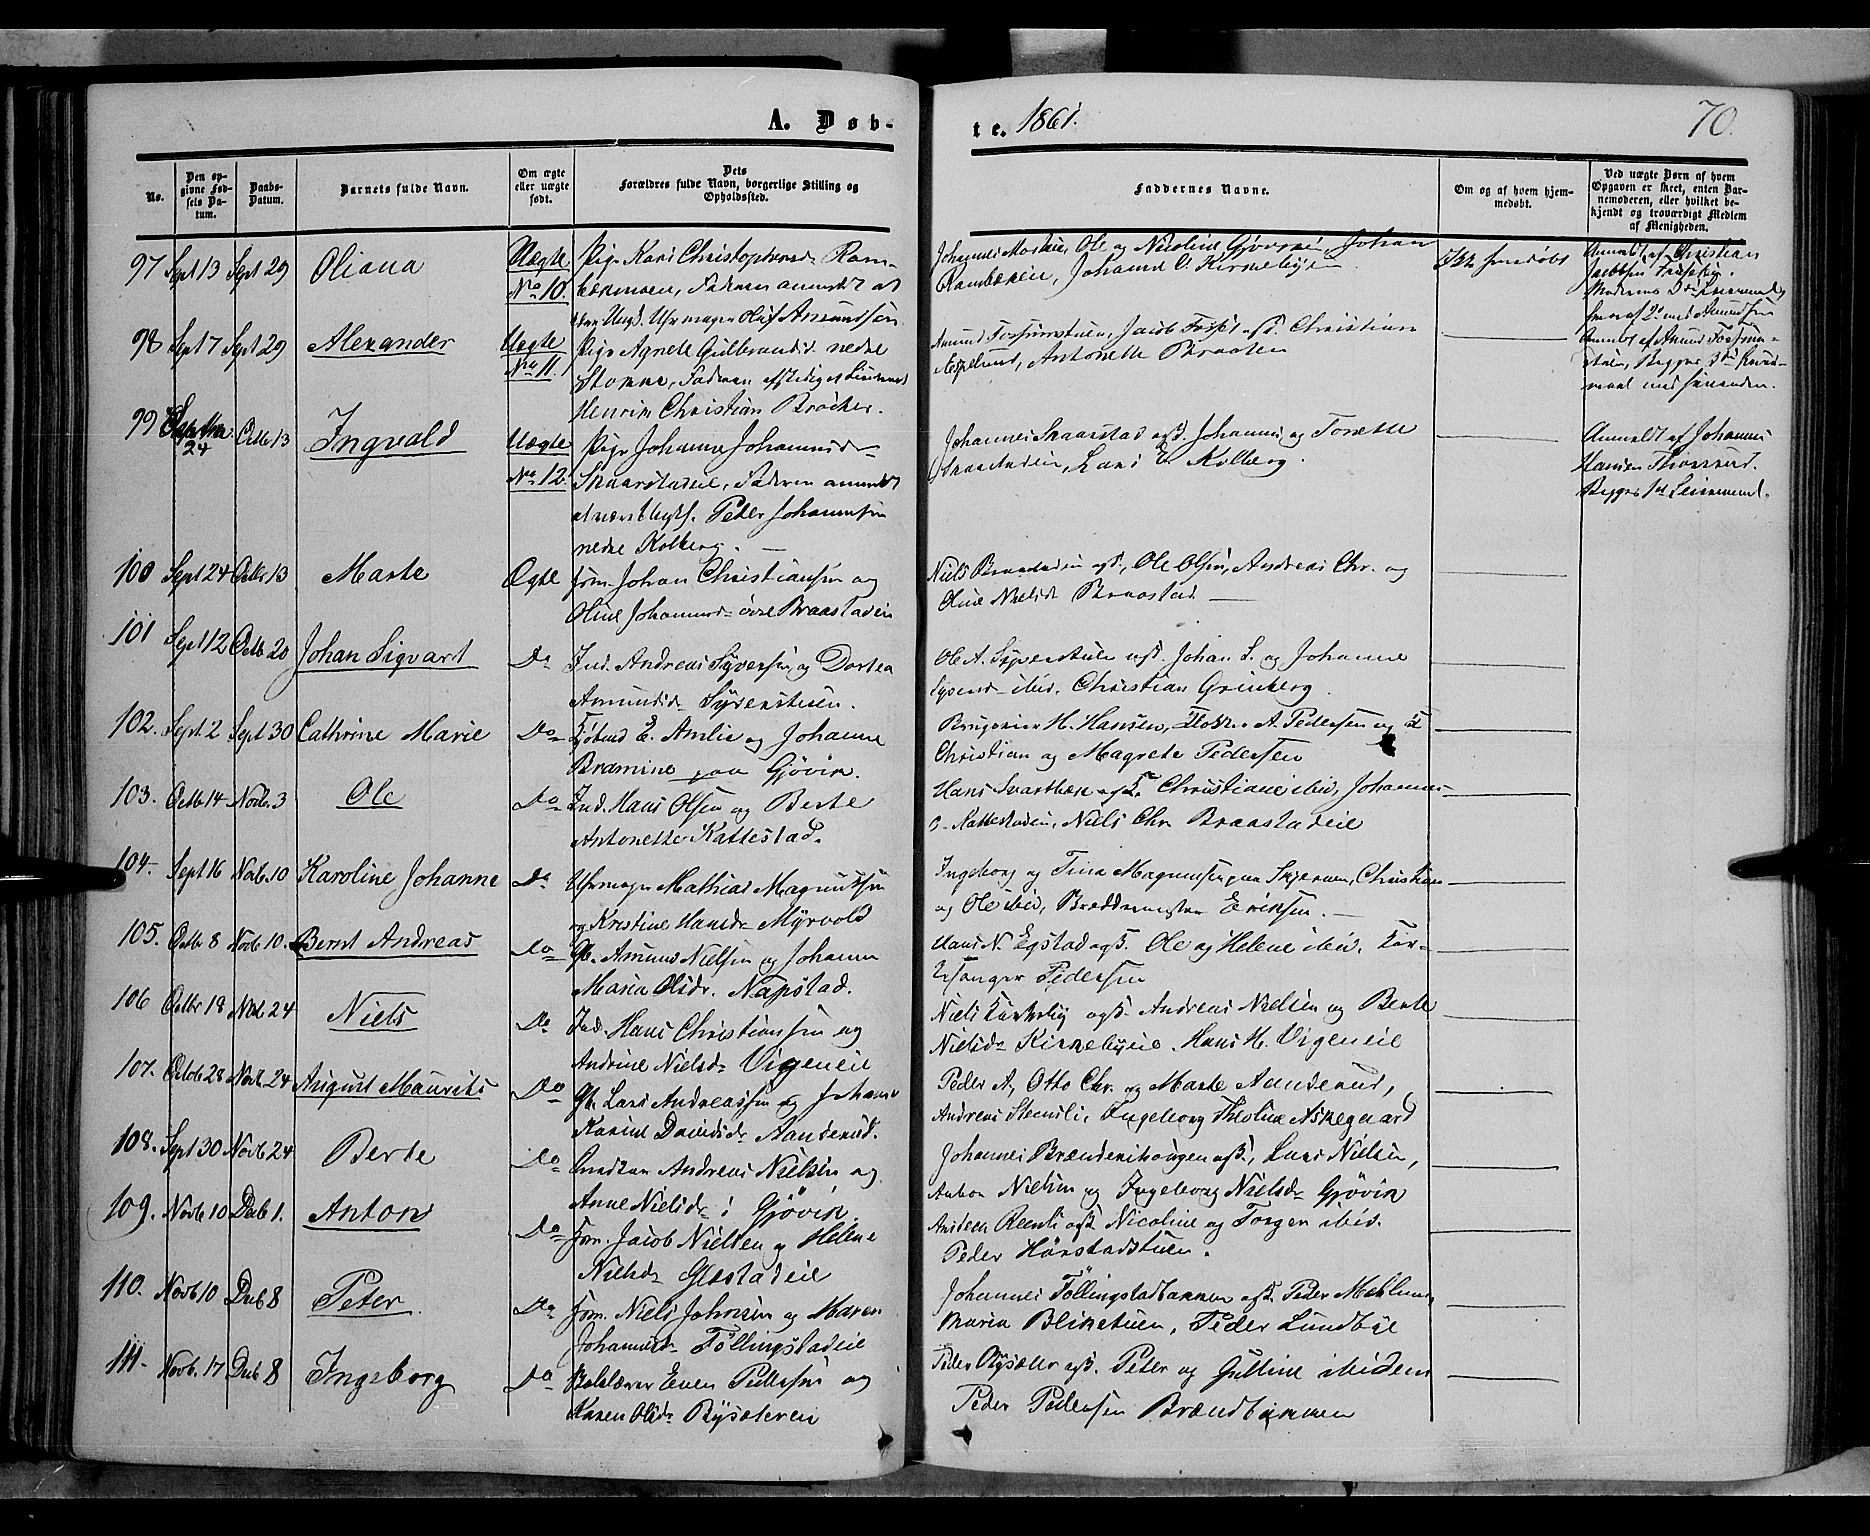 A. Døb-
te. 1861.
70.
No.
Den op-
givne Fød-
sels Da-
tum.
Daabs-
Datum.
Barnets fulde Navn.
Om ægte
eller uægte
født.
Dets
Forældres fulde Navn, borgerlige Stilling og
Opholdssted.
Faddernes Navne.
Om og af hvem hjem-
medøbt.
Ved uægte Børn af hvem
Opgaven er skeet, enten Bar-
nemoderen, eller hvilket be-
kjendt og troværdigt Medlem
af Menigheden.
97 Sept 13 Sept 29 Oliana Uægte Pige Kari Christophersd. Ram-
No 10. bækmoen, Faderen anmeldt at
være Ungk. Uhrmager Oluf Amundsen
Johannes Ole og Nicoline Johan
Rambækeie, Johanne O. Kirkebyeie
Ikke hjemdøbt
Anmeldt af Christian
Jacobsen
Moderens 3die Leiermaal,
2det med Amundsen
98 Sept 7 Sept 29 Alexander Uægte Pige Agnete Gulbrandsd. nedre
No 11. Stokke, Faderen
Henrik Christian Brocker.
Amund Jacob Christian
Espelund, Antonette Braaten
Anmeldt af Amund
Begges 3die Leier-
maal med hinanden.
99 Septbr 24 Octb 13 Ingvald Uægte Pige Johanne Johannesd.
No 12. Skaarstadeie, Faderen anmeldt
at være Ungk. Peder Johannesen
nedre Kolberg.
Johannes Skaarstad ogs. Johannes og Tonette
Skaarstadeie, Lars E. Kolberg.
Anmeldt af Johannes
Hansen
Begges 1st Leiermaal.
100 Sept 24 Octbr 13 Marte Ægte Johan Christiansen og
Oline Johannesd. øvre Braastadeie
Niels Braastadeie ogs., Ole Olsen, Andreas Chr. og
Oline Nielsd. Braastad
101 Sept 12 Octb 20 Johan Sigvart Do Ind. Andreas Syversen og Dortea
Amundsd. Syverstuen.
Ole A. Syverstuen ogs. Johan S. og Johanne
Syversd. ibid. Christian Grinberg
102. Sept 2 Sept 30 Cathrine Marie Do E. Amlie og Johanne
Bramine paa Gjøvik.
H. Hansen, A. Pedersen og
Christian og Magrete Pedersen
103. Octb 14 Novb. 3 Ole Do Ind. Hans Olsen og Berte
Antonette Kattestad.
Hans Svartbæk ogs. Christiane ibid, Johannes
Kattestadeie, Niels Chr. Braastadeie
104. Sept 16 Novb. 10 Karoline Johanne Do Uhrmager Mathias Magnussen
og Kristine Hansdr Myrvold
Ingeborg og Tina Magnussen paa Christian
og Ole ibid, Eriksen.
105. Octbr 8 Novb 10. Bernt Andreas Do Gb. Amund Nielsen og Johanne
Maria Olsdr. Nøpstad.
Hans N. Egstad ogs. Ole og Helene ibid. Kir-
kesanger Pedersen
106 Octbr 18 Novb 24 Niels Do Ind. Hans Christiansen og
Andrine Nielsdr Vigeneie
Niels Kirkeby ogs. Andreas Nielsen og Berte
Nielsdr Kirkebyeie. Hans H. Vigeneie
107. Octob 28 Novb. 24 August Maurits Do Gb. Lars Andreassen og Johanne
Karine Davidsdr Aanderud.
Peder A, Otto Chr. og Marte Aanderud,
Andreas Stensli, Ingeborg Theoline Askegaard
108. Sept 30 Novb 24 Berte Do Andreas Nielsen og
Anne Nielsdr i Gjøvik
Johannes Brændenshougen ogs., Lars Nielsen,
Anton Nielsen og Ingeborg Nielsdr Gjøvik
109. Novb 10 Decb 1. Anton Do Jacob Nielsen og Helene
Nielsdr Gløstadeie
ogs. Nicoline og Torger ibid.
Peder Hørstadstuen.
110. Novb 10 Decb 8 Peter Do Niels Johnsen og Maren
Johannesdr Föllingstadeie
Johannes Föllingstadbakken ogs. Peder
Maria Blikstuen, Peder Lundbye
111- Novb. 17 Decb 8 Ingeborg Do Even Pedersen og
Karen Olsdr Rysæterei
Peder Rysæter ogs. Peter og Gulline ibidem
Peder Pedersen Brændbakken